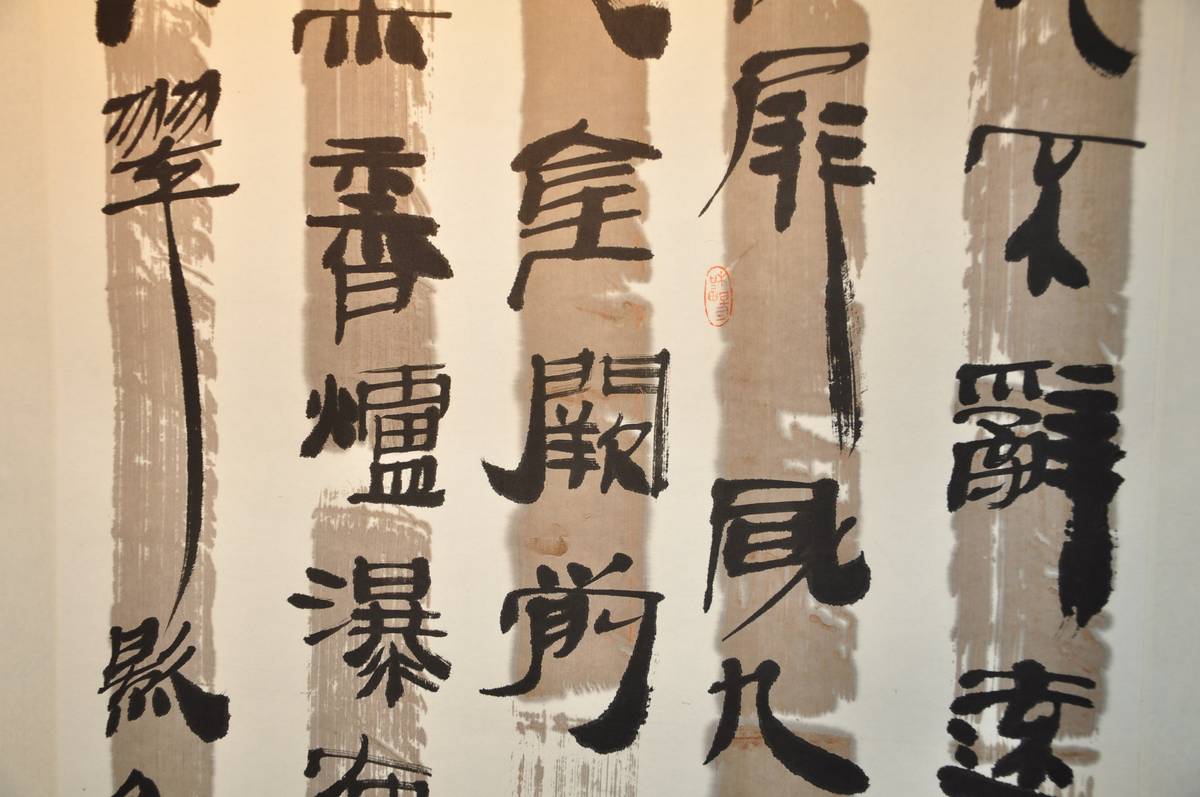 不辭遠
屏風九
金闕前
香爐瀑布
翠影